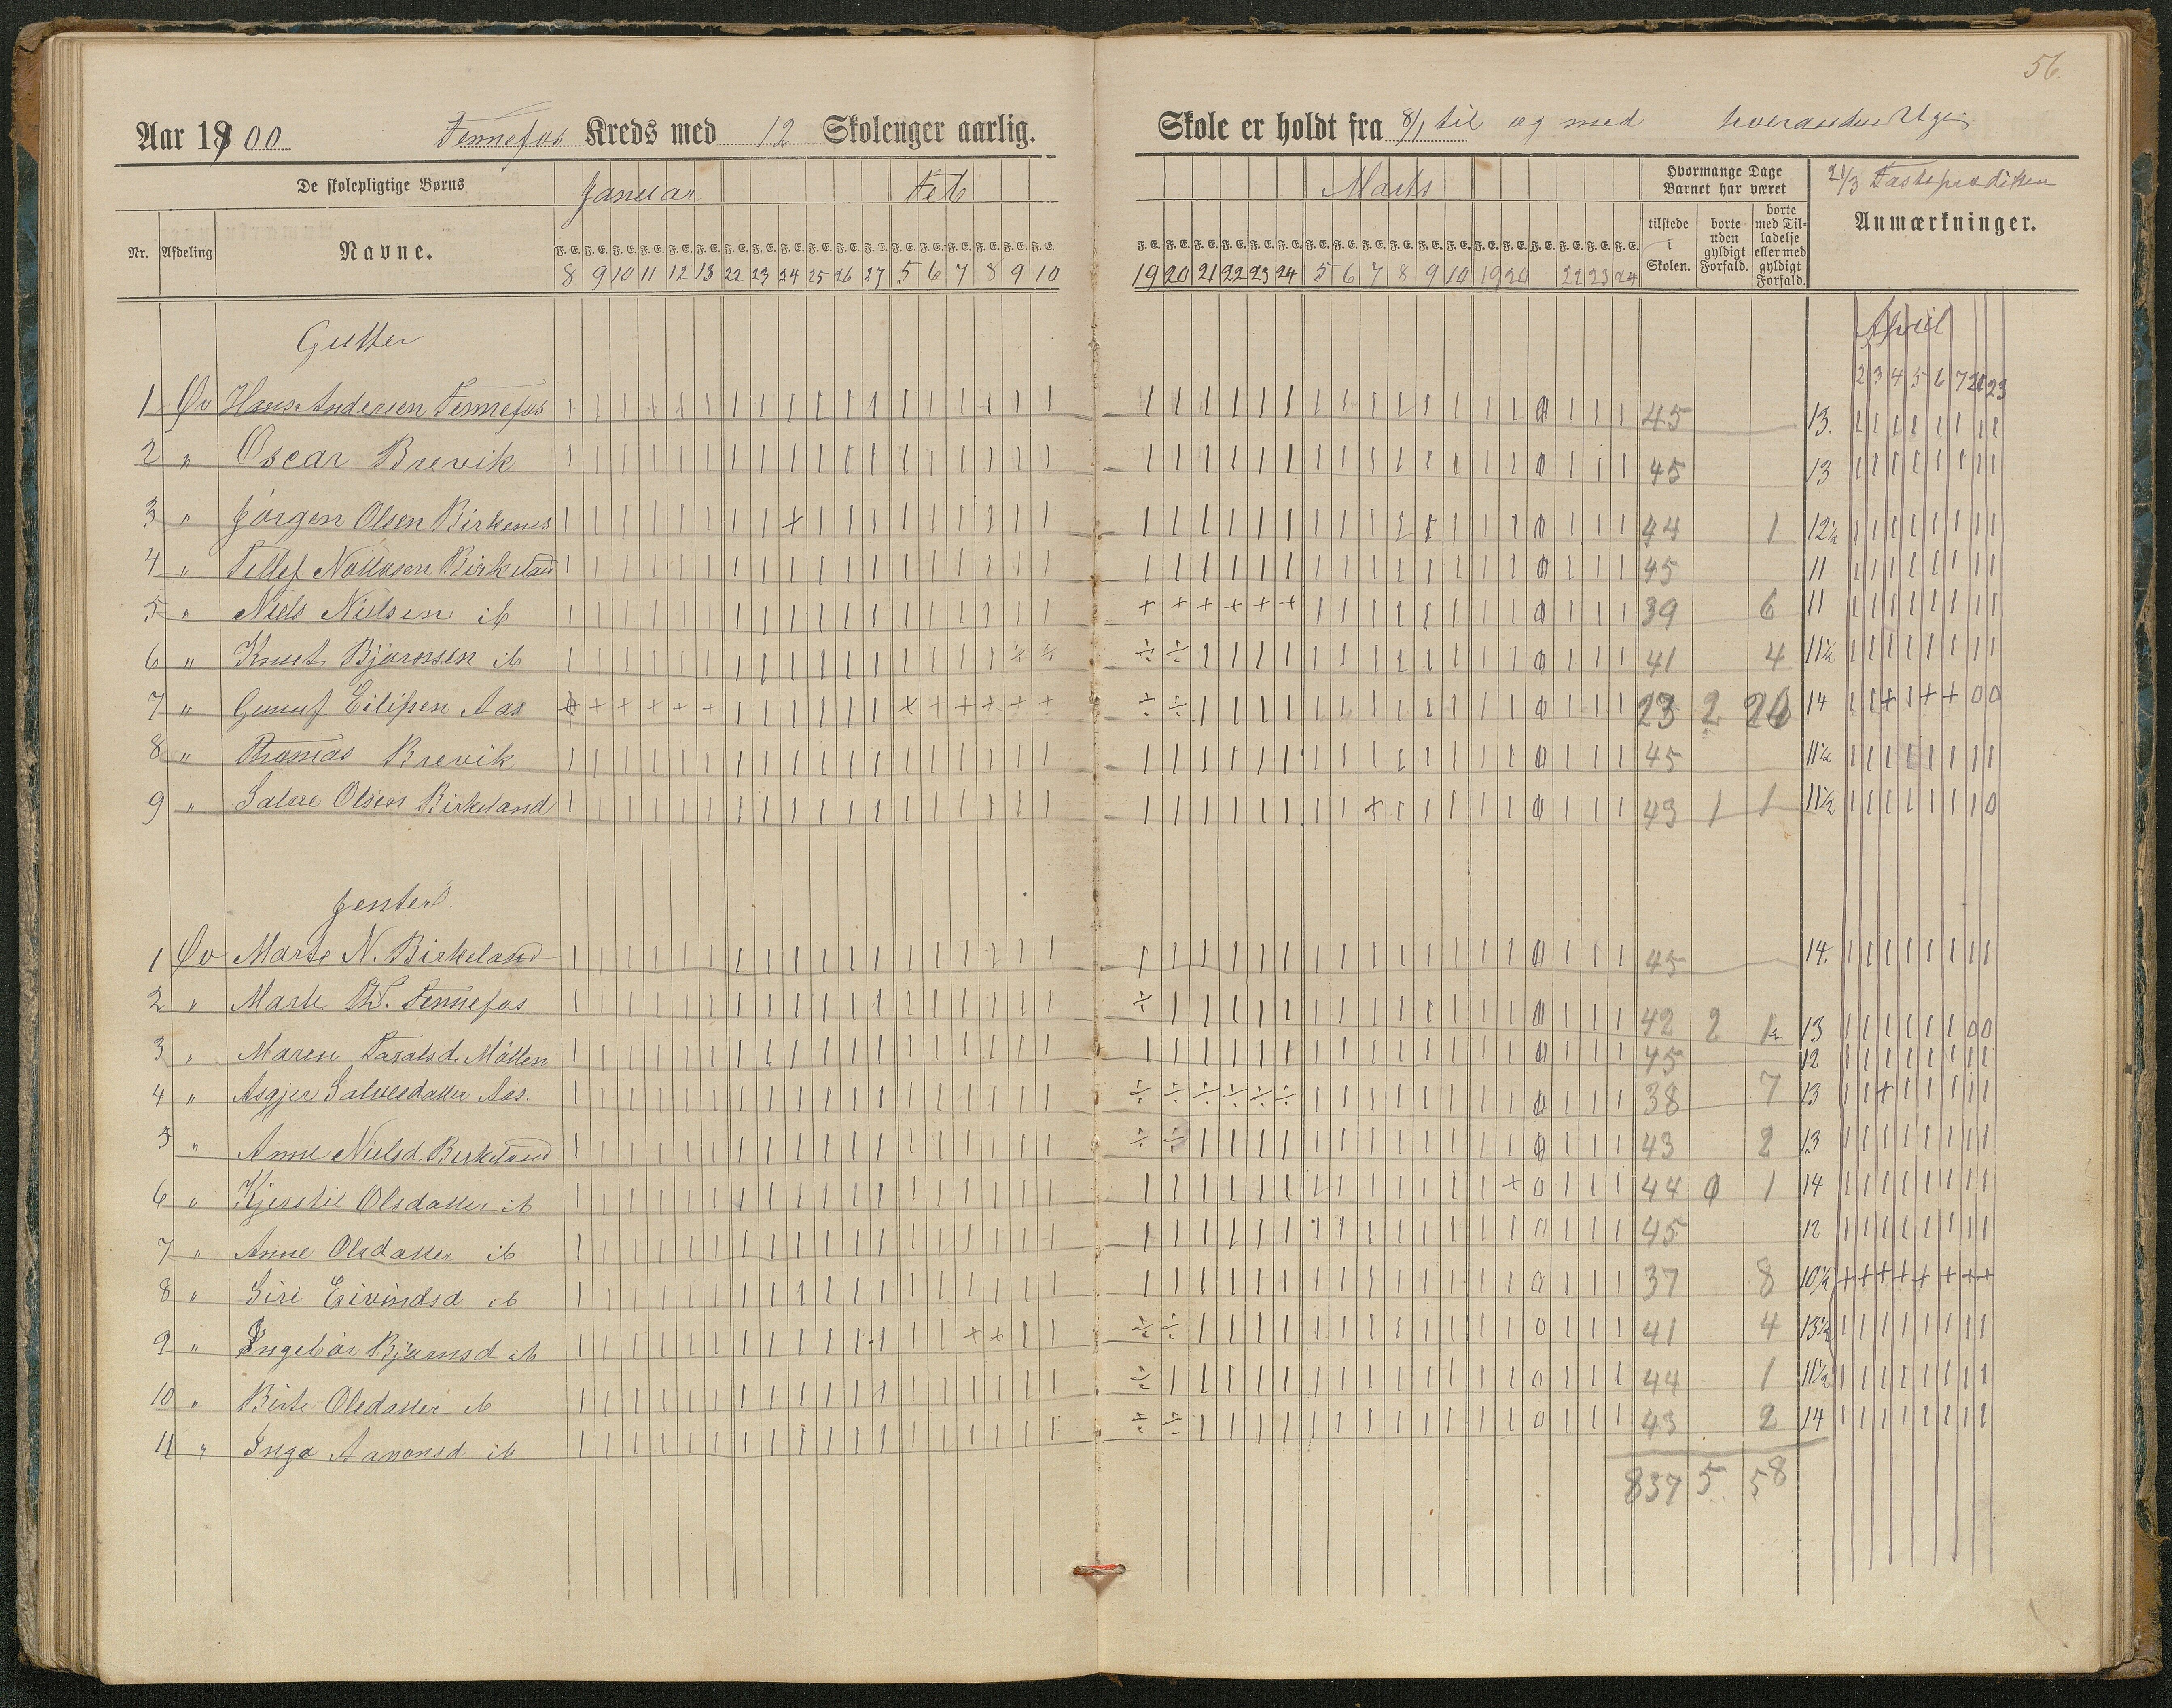 56.
Aar 1900 Tennefos Kreds med 12 Skoleuger aarlig.
Skole er holdt fra 8/1 til og med hverandre Uge
De skolepligtige Børns
Januar Feb
Marts
Hvormange Dage Barnet har været
21/3 Fasteprædiken
Nr. Afdeling Navne.
F. E. F. E. F. E. F. E. F. E. F. E. F. E. F. E. F. E. F. E. F. E. F. E. F. E. F. E. F. E. F. E. F. E. F. E.
8 9 10 11 12 13 22 23 24 25 26 27 5 6 7 8 9 10
F. E. F. E. F. E. F. E. F. E. F. E. F. E. F. E. F. E. F. E. F. E. F. E. F. E. F. E. F. E. F. E. F. E. F. E.
19 20 21 22 23 24 5 6 7 8 9 10 19 20 22 23 24
tilstede i Skolen.
borte uden gyldigt Forfald.
borte med Tilladelse eller med gyldigt Forfald.
Anmærkninger.
April
2 3 4 5 6 7 21 23
Gutter
1 Øv Hans Andersen Tennefos 45 13.
2 " Oscar Brevik 45 13
3 " Jørgen Olsen Birkenes 44 1 12½
4 " Tellef Birkeland 45 11
5 " Niels Nielsen ib 39 6 11
6 " Knut Bjørnsen ib 41 4 11½
7 " Gunuf Eilifsen Aas 23 2 20 14
8 " Thomas Brevik 45 11½
9 " Salve Olsen Birkeland 43 1 1 11½
Jenter.
1 Øv Marte N. Birkeland 45 14.
2 " Marte Th. Tennefos 42 2 1 13
3 " Maren Møllen 45 12
4 " Asgjer Salvesdatter Aas. 38 7 13
5 " Anne Nielsd. Birkeland 43 2 13
6 " Kjerstie Olsdatter ib 44 0 1 14
7 " Anne Olsdatter ib 45 12
8 " Siri Eivindsd ib 37 8 10½
9 " Ingebør Bjørnsd ib 41 4 13½
10 " Birte Olsdatter ib 44 1 11½
11 " Inga Aanonsd ib 43 2 14
837 5 58